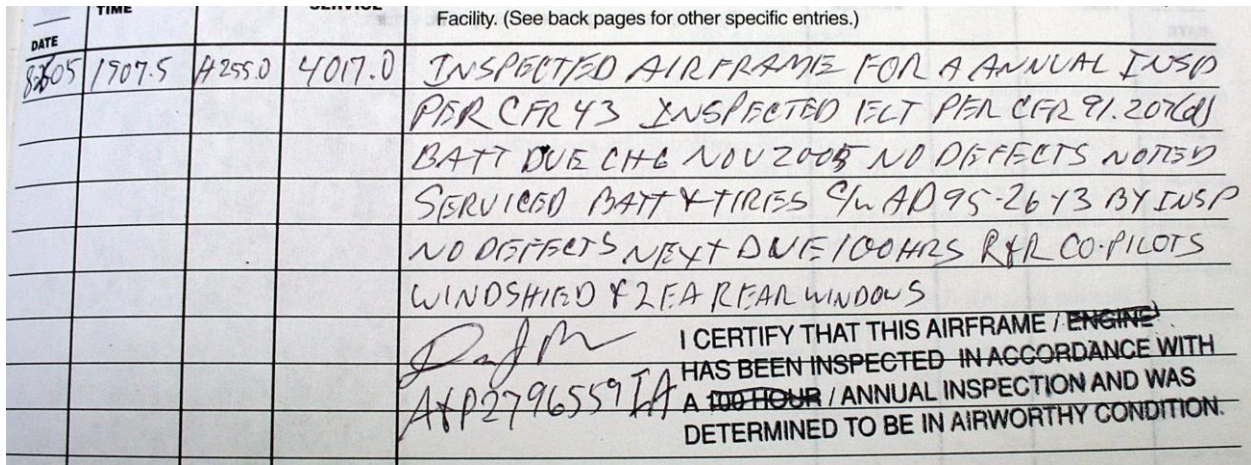 TIME
SERVICE
Facility. (See back pages for other specific entries.)
DATE
1907.5 H255.0 4017.0 INSPECTED AIRFRAME FOR A ANNUAL INSP
PER CFR 43 INSPECTED ELT PER CFR 91.207(d)
BATT DUE CHG NOV 2005 NO DEFECTS NOTED
SERVICED BATT & TIRES C/W AD 95-26-13 BY INSP
NO DEFECTS NEXT DUE 100HRS R&R CO-PILOTS
WINDSHIED & 2 EA REAR WINDOWS
A&P2796559 IA
I CERTIFY THAT THIS AIRFRAME / ENGINE
HAS BEEN INSPECTED IN ACCORDANCE WITH
A 100 HOUR / ANNUAL INSPECTION AND WAS
DETERMINED TO BE IN AIRWORTHY CONDITION.